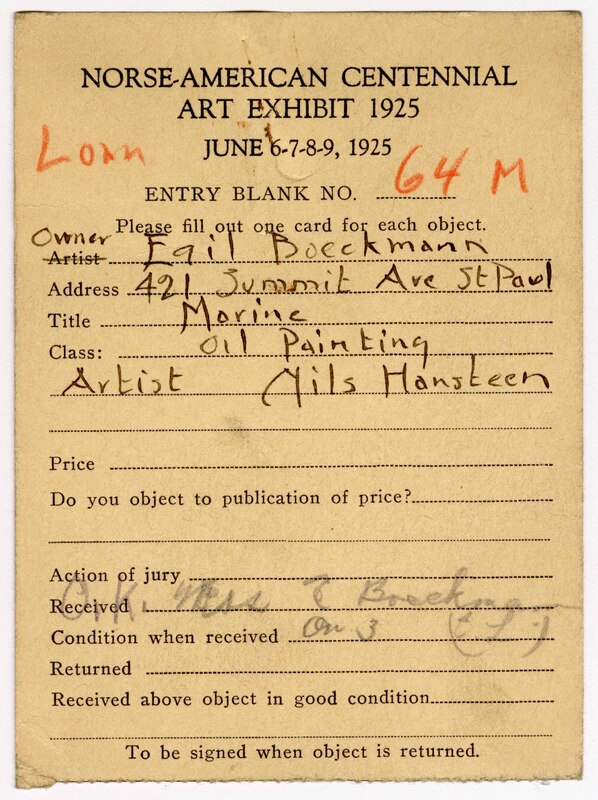 NORSE-AMERICAN CENTENNIAL
ART EXHIBIT 1925
JUNE 6-7-8-9, 1925
Loan
ENTRY BLANK NO. 64 M
Please fill out one card for each object.
Owner
Artist Egil Boeckmann
Address 421 Summit Ave St Paul
Title Marine
Class: Oil Painting
Artist Nils Hansteen
Price
Do you object to publication of price?
Action of jury
Received O.K. Mrs E Boeckmann
Condition when received On 3
Returned
Received above object in good condition
To be signed when object is returned.